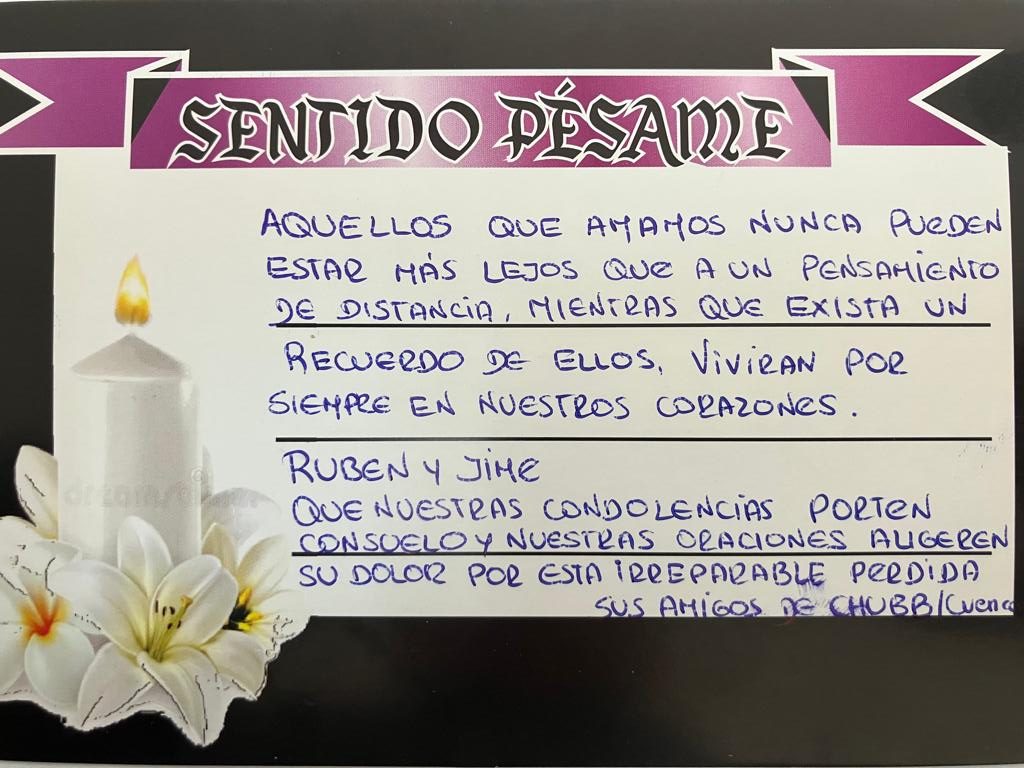 SENTIDO PÉSAME
AQUELLOS QUE AMAMOS NUNCA PUEDEN
ESTAR MÁS LEJOS QUE A UN PENSAMIENTO
DE DISTANCIA, MIENTRAS QUE EXISTA UN
RECUERDO DE ELLOS, VIVIRAN POR
SIEMPRE EN NUESTROS CORAZONES.
RUBEN Y JIME
QUE NUESTRAS CONDOLENCIAS PORTEN
CONSUELO Y NUESTRAS ORACIONES ALIGEREN
SU DOLOR POR ESTA IRREPARABLE PERDIDA
SUS AMIGOS DE CHUBB/Cuenca